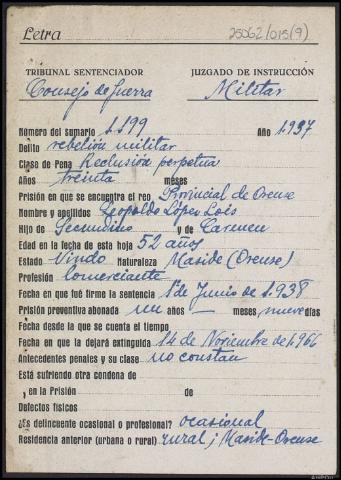 Letra
25062/015(9)
TRIBUNAL SENTENCIADOR JUZGADO DE INSTRUCCIÓN
Consejo de Guerra Militar
Número del sumario 1.199 Año 1.937
Delito rebelión militar
Clase de Pena Reclusión perpetua
Años treinta meses
Prisión en que se encuentra el reo Provincial de Orense
Nombre y apellidos Leopoldo López Lois
Hijo de Secundino y de Carmen
Edad en la fecha de esta hoja 52 años
Estado Viudo Naturaleza Maside (Orense)
Profesión Comerciante
Fecha en que fué firme la sentencia 1º de Junio de 1.938
Prisión preventiva abonada un años — meses, nueve días
Fecha desde la que se cuenta el tiempo
Fecha en que la dejará extinguida 14 de Noviembre de 1.966
Antecedentes penales y su clase no constan
Está sufriendo otra condena de
, en la Prisión de
Defectos físicos
¿Es delincuente ocasional o profesional? ocasional
Residencia anterior (urbana o rural) rural; Maside-Orense